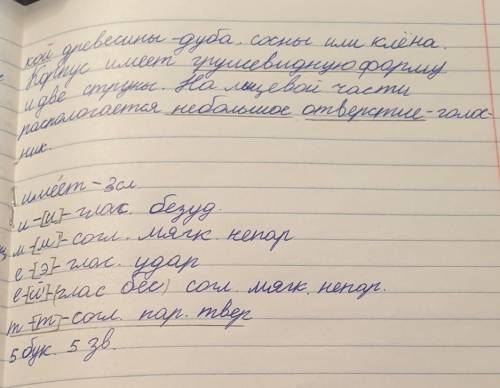 кой древесины - дуба, сосны или клёна.
Корпус имеет грушевидную форму
и две струны. На лицевой части
распологается небольшое отверстие - голос-
ник.
имéет - 3 сл
и - [и] - глас. безуд.
м - [м'] - согл. мягк. непар
е - [э] - глас. удар
е - [й] - (глас без) согл. мягк. непар.
т - [т] - согл. пар. твер
5 бук. 5 зв.